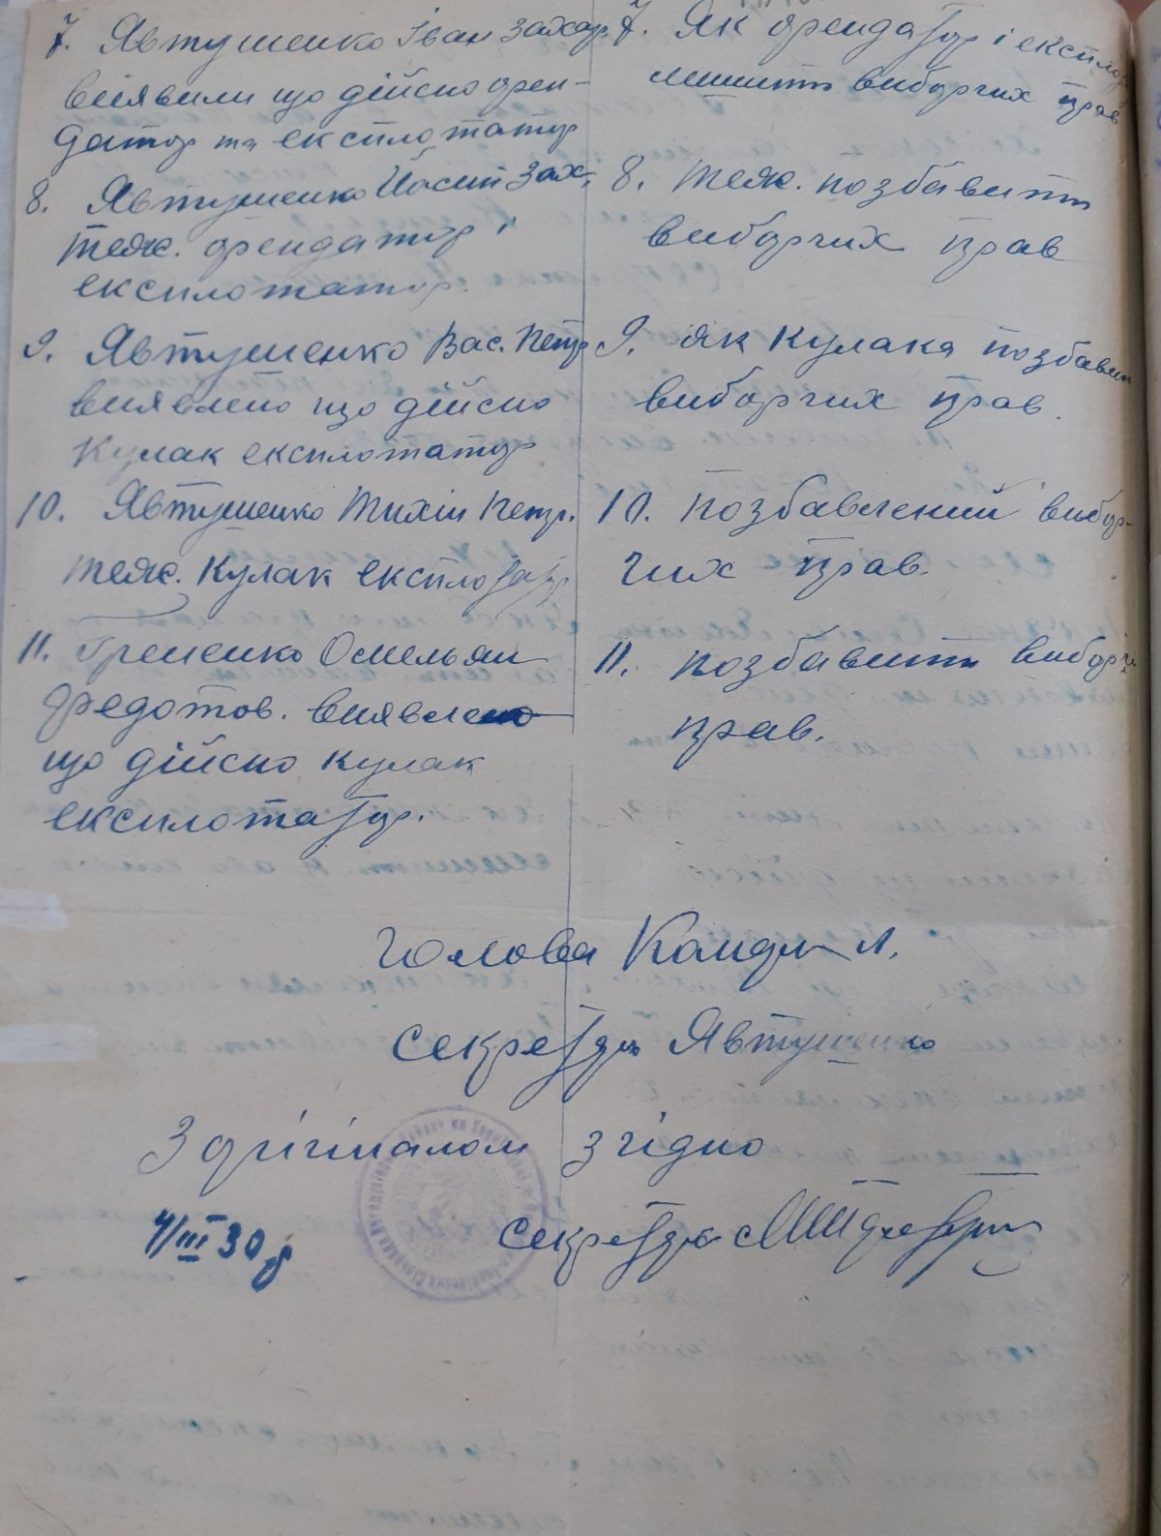 7. Явтушенко Іван Захар.
виявили що дійсно орен-
датор та експлотатор
8. Явтушенко Йосип Зах.
теж. орендатор і
експлотатор.
9. Явтушенко Вас. Петр.
виявлено що дійсно
Кулак експлотатор
10. Явтушенко Тихін Петр.
теж. Кулак експлотатор
11. Гременко Омельян
Федотов. виявлено
що дійсно кулак
експлотатор.
7. Як орендатор і експлот
лишить виборчих прав
8. теж. позбавить
виборчих прав
9. як Кулака позбавит
виборчих прав.
10. позбавлений вибор-
чих прав.
11. позбавить виборчи
прав.
Голова
Секретарь Явтушенко
З орігіналом згідно
4/III 30 р
Секретарь